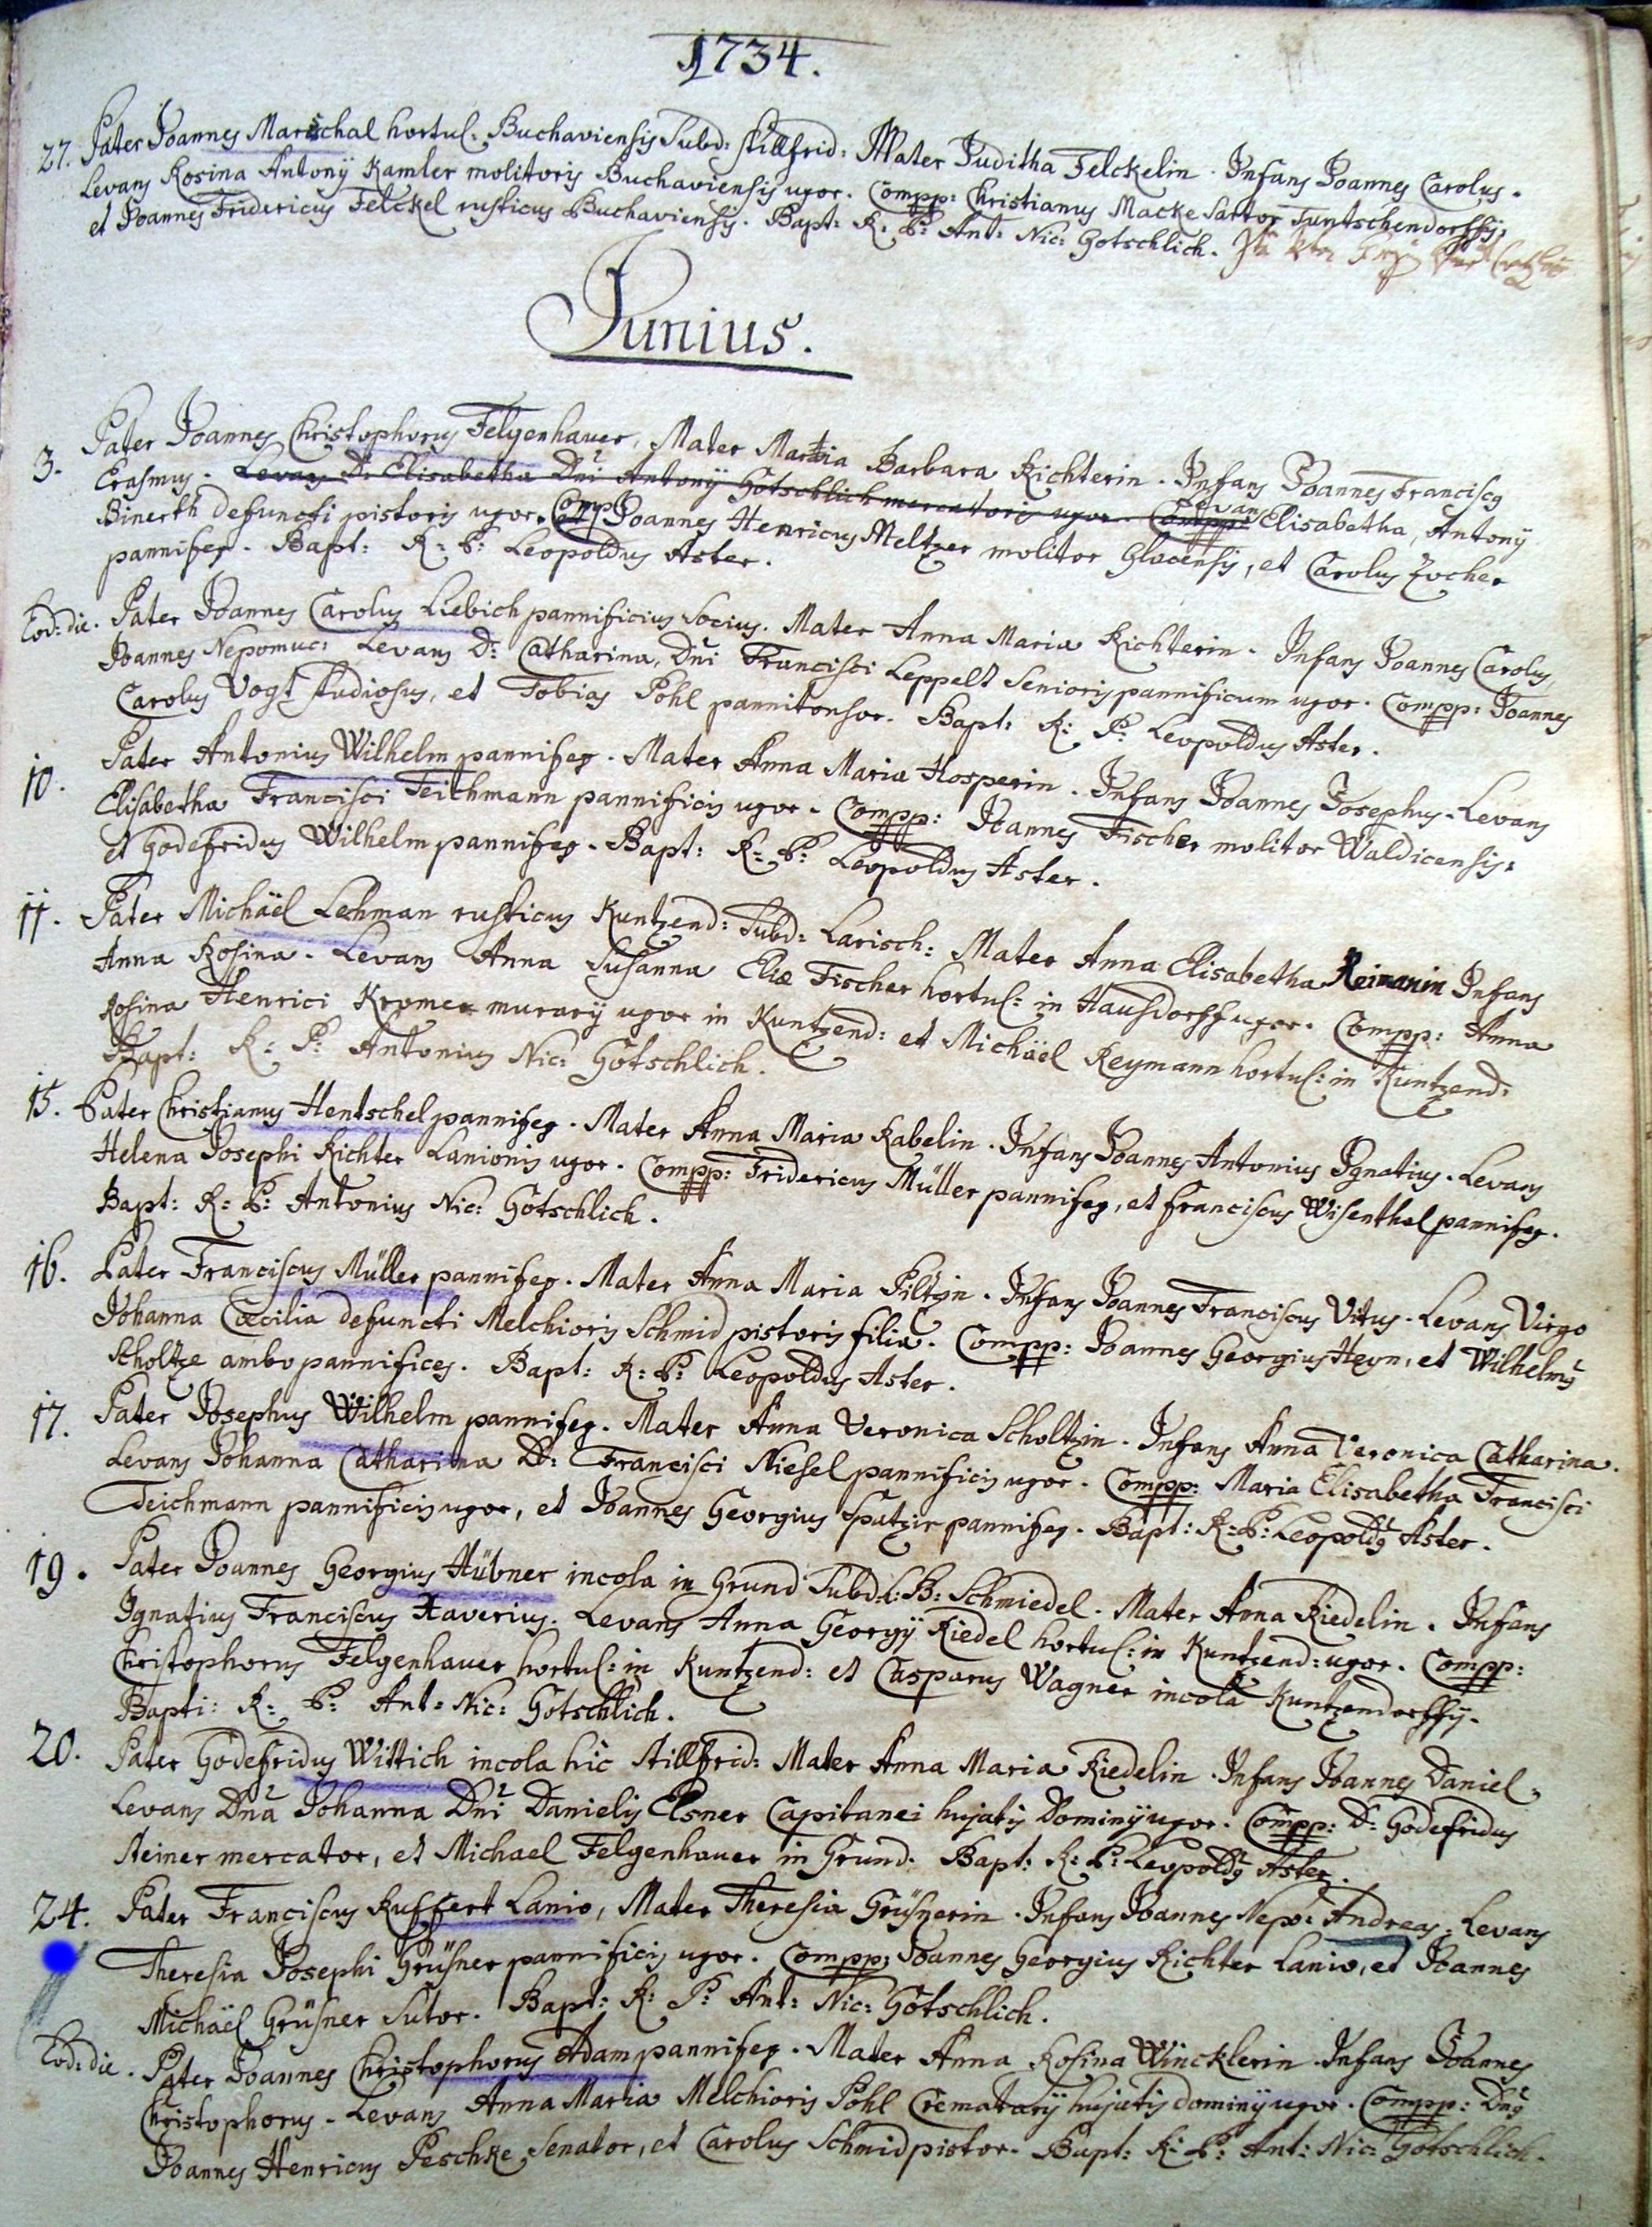 1734.
27. Pater Joannes Mareschal hortul: Buchaviensis Subd: Stillfrid: Mater Juditha Felckelin. Infans Joannes Carolus.
Levans Rosina Antonÿ Kamler molitoris Buchaviensis uxor. Compp: Christianus Macke Sartor Tuntschendorffs;
et Joannes Fridericus Felckel rusticus Buchaviensis. Bapt: R: P: Ant: Nic: Götschlich.
Junius.
3. Pater Joannes Christophorus Felgenhauer, Mater Maria Barbara Richterin. Infans Joannes Franciscq
Erasmus. Levans D: Elisabetha Dni Antonÿ Götschlich mercatoris uxor. Compp: Levans Elisabetha, Antonÿ
Binerth defuncti pistoris uxor. Comp Joannes Henricus Meltzer molitor Glacensis, et Carolus Zocher
pannifex. Bapt: R: P: Leopoldus Aster.
Eod: die. Pater Joannes Carolus Liebich pannificius Socius. Mater Anna Maria Richterin. Infans Joannes Carolus,
Joannes Nepomuc: Levans D: Catharina, Dni Francisci Leppelt Senioris pannificum uxor. Compp: Joannes
Carolus Vogt studiosus, et Tobias Pohl pannitonsor. Bapt: R: P: Leopoldus Aster.
10. Pater Antonius Wilhelm pannifex. Mater Anna Maria Hosperin. Infans Joannes Josephus. Levans
Elisabetha Francisci Teichmann pannificis uxor. Compp: Joannes Fischer molitor Waldicensis:
et Godefridus Wilhelm pannifex. Bapt: R: P: Leopoldus Aster.
11. Pater Michäel Lehman rusticus Kuntzend: Subd: Larisch: Mater Anna Elisabetha Reimanin Infans
Anna Rosina. Levans Anna Susanna Eliæ Fischer hortul: in Hausdorff uxor. Compp: Anna
Rosina Henrici Kromer murarÿ uxor in Kuntzend: et Michäel Reymann hortul: in Kuntzend:
Bapt: R: P: Antonius Nic: Götschlich.
15. Pater Christianus Hentschel pannifex. Mater Anna Maria Rabelin. Infans Joannes Antonius Ignatius. Levans
Helena Josephi Richter Lanionis uxor. Compp: Fridericus Müller pannifex, et Franciscus Wisenthal pannifex.
Bapt: R: P: Antonius Nic: Götschlich.
16. Pater Franciscus Müller pannifex. Mater Anna Maria Piltzin. Infans Joannes Franciscus Vitus. Levans Virgo
Johanna Cæcilia defuncti Melchioris Schmid pistoris filia. Compp: Joannes Georgius Heyn, et Wilhelmq
Scholtze ambo pannifices. Bapt: R: P: Leopoldus Aster.
17. Pater Josephus Wilhelm pannifex. Mater Anna Veronica Scholtzin. Infans Anna Veronica Catharina.
Levans Johanna Catharina D: Francisci Niesel pannificis uxor. Compp: Maria Elisabetha Francisci
Teichmann pannificis uxor, et Joannes Georgius Spatzir pannifex. Bapt: R: P: Leopoldq Aster.
19. Pater Joannes Georgius Hübner incola in Grund Subd: L: B: Schmiedel. Mater Anna Riedelin. Infans
Ignatius Franciscus Xaverius. Levans Anna Georgÿ Riedel hortul: in Kuntzend: uxor. Compp:
Christophorus Felgenhauer hortul: in Kuntzend: et Casparus Wagner incola Kuntzendorffs.
Bapti: R: P: Ant: Nic: Götschlich.
20. Pater Godefridus Wittich incola hic Stillfrid: Mater Anna Maria Riedelin. Infans Joannes Daniel.
Levans Dna Johanna Dni Danielis Elsner Capitanei hujatis Dominÿ uxor. Compp: D: Godefridus
Steiner mercator, et Michael Felgenhauer in Grund. Bapt: R: P: Leopoldq Aster.
24. Pater Franciscus Ruffert Lanio, Mater Theresia Grüsnerin. Infans Joannes Nepo: Andreas. Levans
Theresia Josephi Grüsner pannificis uxor. Compp: Joannes Georgius Richter Lanio, et Joannes
Michäel Grüsner Sutor. Bapt: R: P: Ant: Nic: Götschlich.
Eod: die. Pater Joannes Christophorus Adam pannifex. Mater Anna Rosina Wincklerin. Infans Joannes
Christophorus. Levans Anna Maria Melchioris Pohl Crematorÿ hujatis dominÿ uxor. Compp: Dnq
Joannes Henricus Peschke Senator, et Carolus Schmid pistor. Bapt: R: P: Ant: Nic: Götschlich.